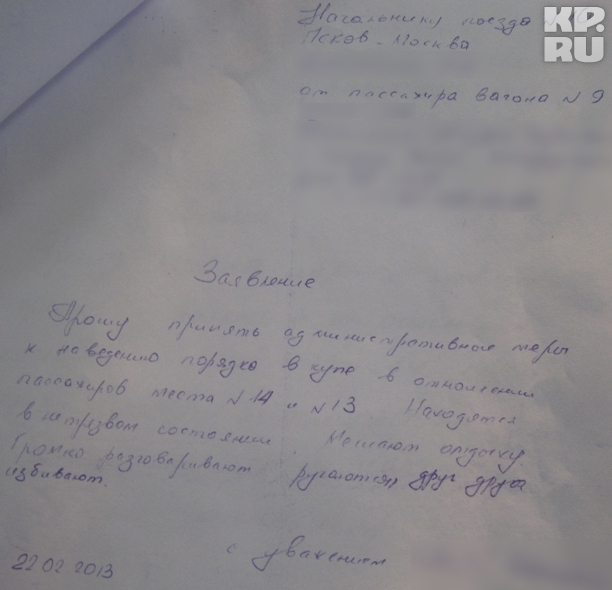 Начальнику поезда №
KP.RU
Псков-Москва
от пассажира вагона №9
Заявление
Прошу принять административные меры
к наведению порядка в купе в отношении
пассажиров места №14 и №13. Находятся
в нетрезвом состоянии. Мешают отдыху.
Громко разговаривают ругаются, друг друга
избивают.
с уважением
22.02.2013